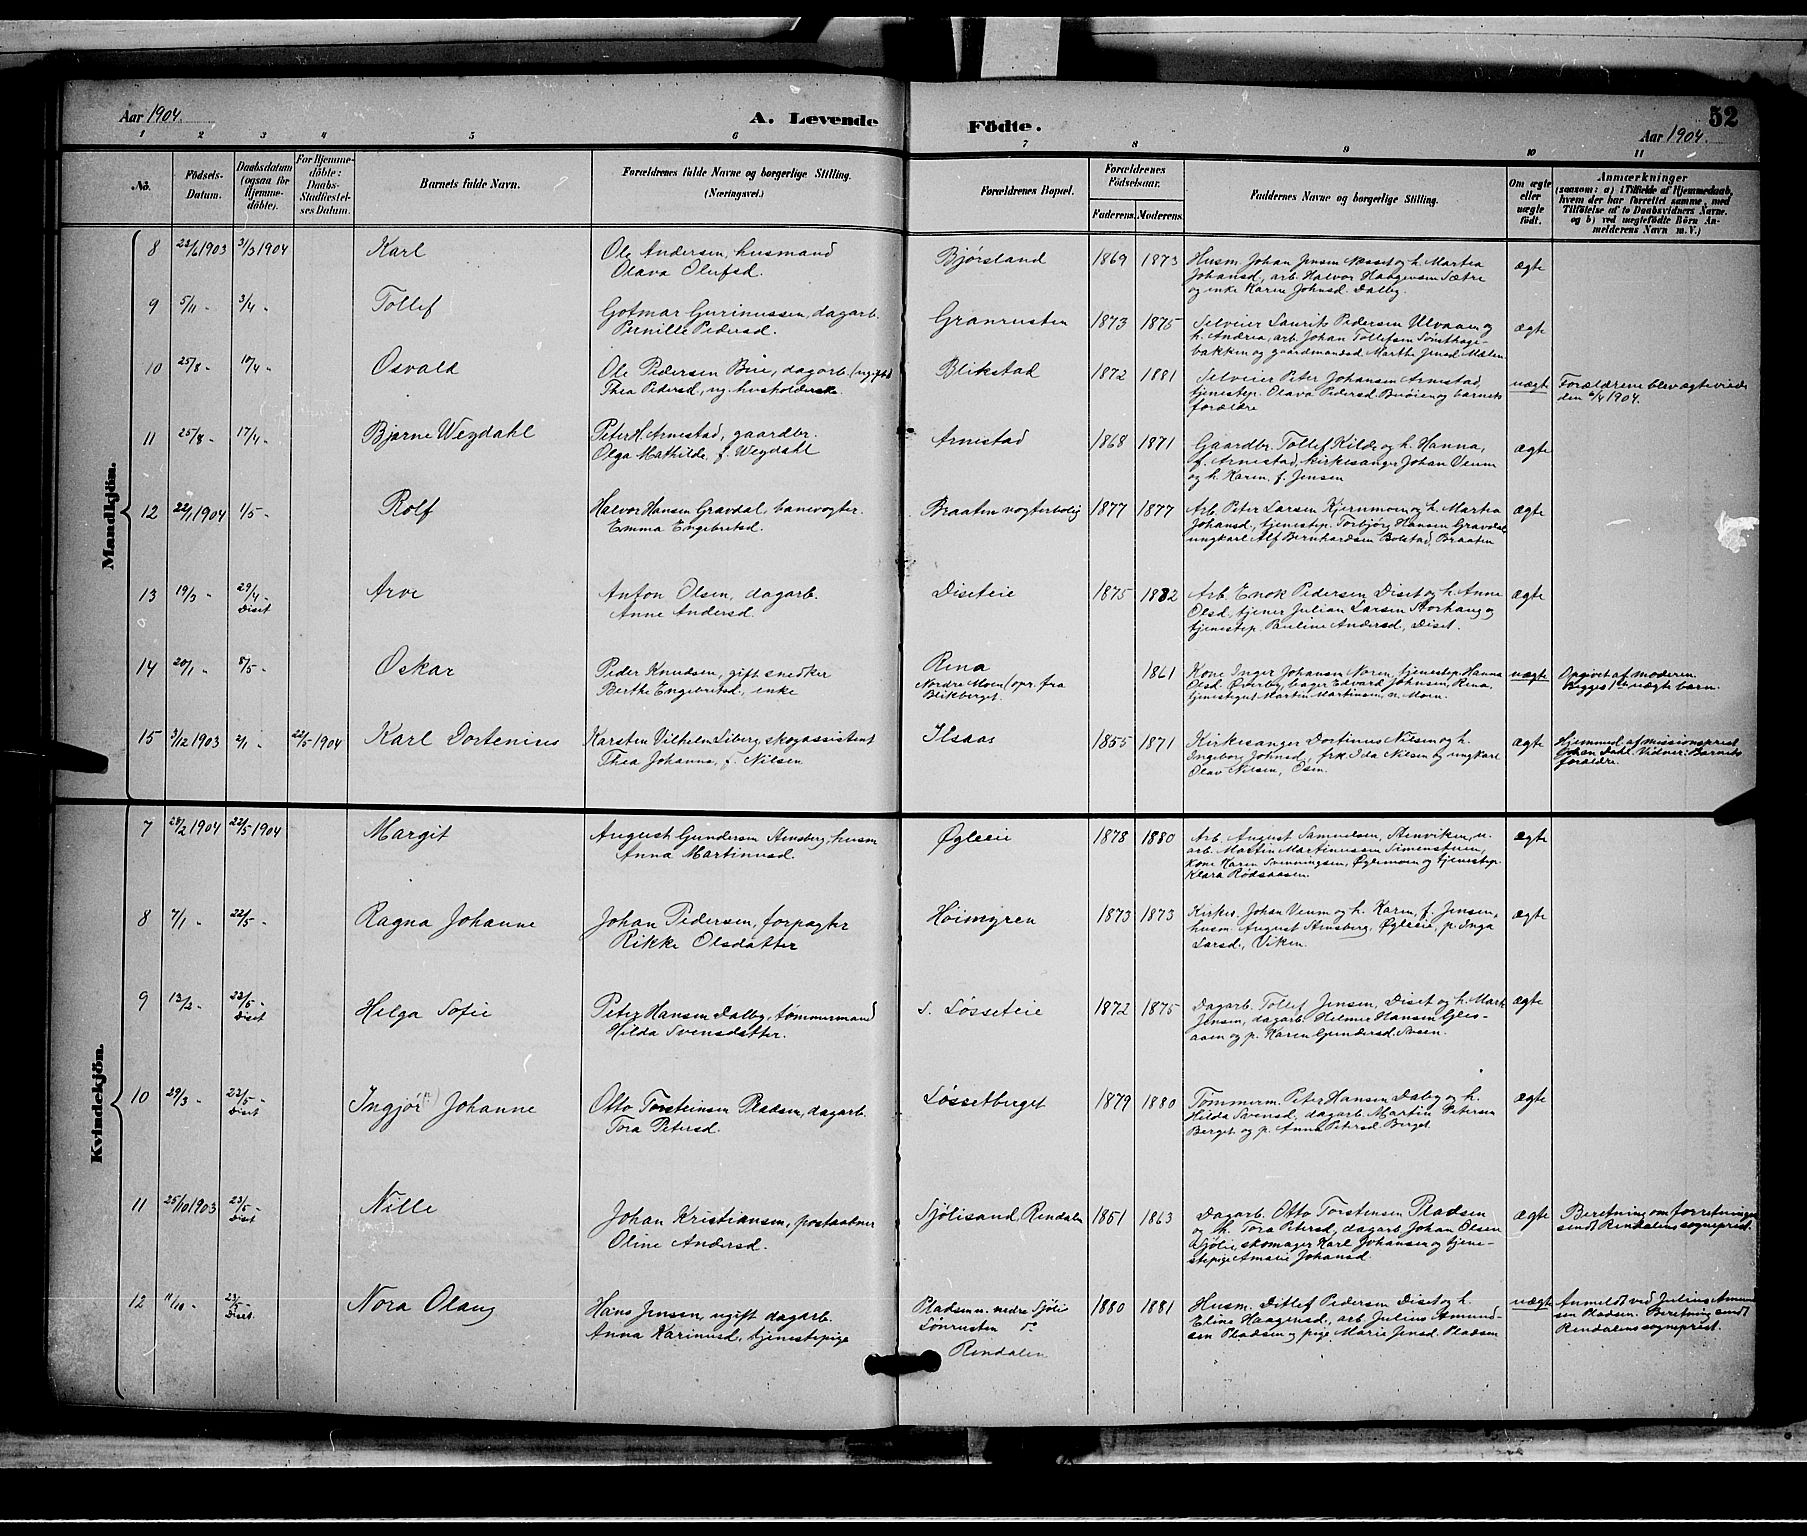 Aar 1904.
A. Levende Födte.
52
Aar 1904.
1 2 3 4 5 6 7 8 9 10 11
No.
Födsels-
Datum.
Daabsdatum
(ogsaa for
Hjemme-
döbte).
For Hjemme-
döbte:
Daabs-
Stadfæstel-
ses Datum.
Barnets fulde Navn.
Forældrenes fulde Navne og borgerlige Stilling.
(Næringsvei.)
Forældrenes Bopæl.
Forældrenes
Födselsaar.
Faderens. Moderens.
Faddernes Navne og borgerlige Stilling.
Om ægte
eller
uægte
födt.
Anmærkninger
(saasom: a) i Tilfælde af Hjemmedaab,
hvem der har forrettet samme, med
Tilföielse af to Daabsvidners Navne.
og b) ved uægtefödte Börn An-
melderens Navn m. V.)
Mandkjön.
8 22/6 1903 3/3 1904 Karl
Ole Andersen, husmand
Olava Olufsd.
Bjørsland 1869 1873
Husm. Johan Jensen Næsset og h. Martea
Johansd, arb. Halvor Haagensen Sætre
og enke Karen Johnsd. Dalby.
ægte
9 5/11 - 3/4 - Tollef
Gotmar Gurinussen, dagarb.
Pernille Pedersd.
Granrusten 1873 1875
Selveier Laurits Pedersen Ulvaaen og
h. Andrea, arb. Johan Tollefsen Sønsthage-
bakken og gaardmandsd. Marthe Jensd. Mælen
ægte
10 25/8 - 10/4 - Osvald
Ole Pedersen Bue, dagarb. (ug. gift)
Thea Pedersd, ug. husholderske.
Blikstad 1872 1881
Selveier Peter Johansen Arnestad,
tjenestep. Olava Pedersd. og barnets
forældre
uægte
Forældrene blev ægteviede
den 6/4 1904.
11 25/8 - 17/4 - Bjarne Wegdahl
Peter H. Arnestad, gaardbr.
Olga Mathilde, f. Wegdahl
Arnestad 1868 1871
Gaardbr. Tollef Kilde og h. Hanna,
f. Arnestad, kirkesanger Johan Veum
og h. Karen, f. Jensen
ægte
12 22/1 1904 1/5 - Rolf
Halvor Hansen Gravdal, banevogter
Emma Engebretsd.
Braaten vogterbolig 1877 1877
Arb. Peter Larsen Kjernmoen og h. Martea
Johansd, tjenestep. Torbjørg Hansen Gravdal,
ungkarl Alf Bernhardsen Bolstad, Braaten
ægte
13 19/3 - 29/4 - Diset Arve
Anton Olsen, dagarb.
Anne Andersd.
Diseteie 1875 1882
Arb. Enok Pedersen Diset og h. Anne
Olsd, tjener Julian Larsen Storhaug og
tjenestep. Pauline Andersd, Diset.
ægte
14 20/1 - 8/5 - Oskar
Peder Knudsen, gift snedker
Berthe Engebretsd, enke
Rena
Nordre Moen (opr. fra
Blikberget.
1861
Kone Inger Johansen Noren, tjenestep. Hanna
Olsd. Øverby, bager Edvard Johnsen, Rena,
tjenestegut Martin Martinsen n. Moen.
uægte
Opgivet af moderen
Begges 1ste uægte barn.
15 3/12 1903 2/1 - 22/5 1904 Karl Dortenius
Karsten Vilhelm Siberg, skogassistent
Thea Johanna, f. Nilsen
Ilsaas 1855 1871
Kirkesanger Dortinus Nilsen og h.
Ingeborg Johnsd, frk. Ida Nilsen og ungkarl
Olav Nilsen, Osen.
ægte
Hjemmed. af missionsprest
Johan Dahl. Vidner: Barnets
forældre.
Kvindekjön.
7 28/2 1904 22/5 1904 Margit
August Gundersen Arnsberg, husm
Anna Martinusd.
Øgleeie 1878 1880
Arb. August Samuelsen, Stenviken, u.
arb. Martin Martinussen Simenstuen,
Kone Karen Svenningsen, Øglemoen og tjenestep.
Klara Rødsaasen.
ægte
8 7/1 - 22/5 - Ragna Johanne
Johan Pedersen, forpagter
Rikke Olsdatter
Høimyren 1873 1873
Kirkes. Johan Veum og h. Karen, f. Jensen,
husm. August Arnsberg, Øgleeie, p. Inga
Larsd., Viken.
ægte
9 13/2 - 22/5 - Diset Helga Sofie
Peter Hansen Dalby, tømmermand
Hilda Svensdatter
S. Løsseteie 1872 1875
Dagarb. Tollef Jensen, Diset og h. Mark
Jensen, dagarb. Helmer Hansen Gles-
aaen og p. Karen Gundersd.
ægte
10 29/3 - 22/5 - Diset Ingjør Johanne
Otto Torsteinsen Pladsen, dagarb.
Tora Petersd.
Løssetberget 1879 1880
Tømmerm. Peter Hansen Dalby og h.
Hilda Svensd, dagarb. Martin Petersen
Berget og p. Anna Petersd. Berget
ægte
11 25/10 1903 23/5 - Diset Nille
Johan Kristiansen, postaabner
Oline Andersd.
Sjølisand, Rendalen 1851 1863
Dagarb. Otto Torstensen Pladsen
og h. Tora Petersd, dagarb. Johan Olsen
Sjølie, skomager Karl Johansen og tjene-
stepige Amalie Johansd.
ægte
Beretning om forretningen
sendt Rendalens sogneprest.
12 11/10 - 23/5 - Diset. Nora Olaug
Hans Jensen, ugift dagarb.
Anna Karinusd, tjenestepige
Pladsen u. nedre Sjølie
Lønrusten do
Rendalen
1880 1881
Husm. Ditlef Pedersen Diset og h.
Eline Haagensd., arb. Julius Amund-
sen Pladsen og pige Marie Jensd. Pladsen
uægte
Anmeldt ved Julius Amund-
sen Pladsen. Beretning sendt
Rendalens sogneprest.